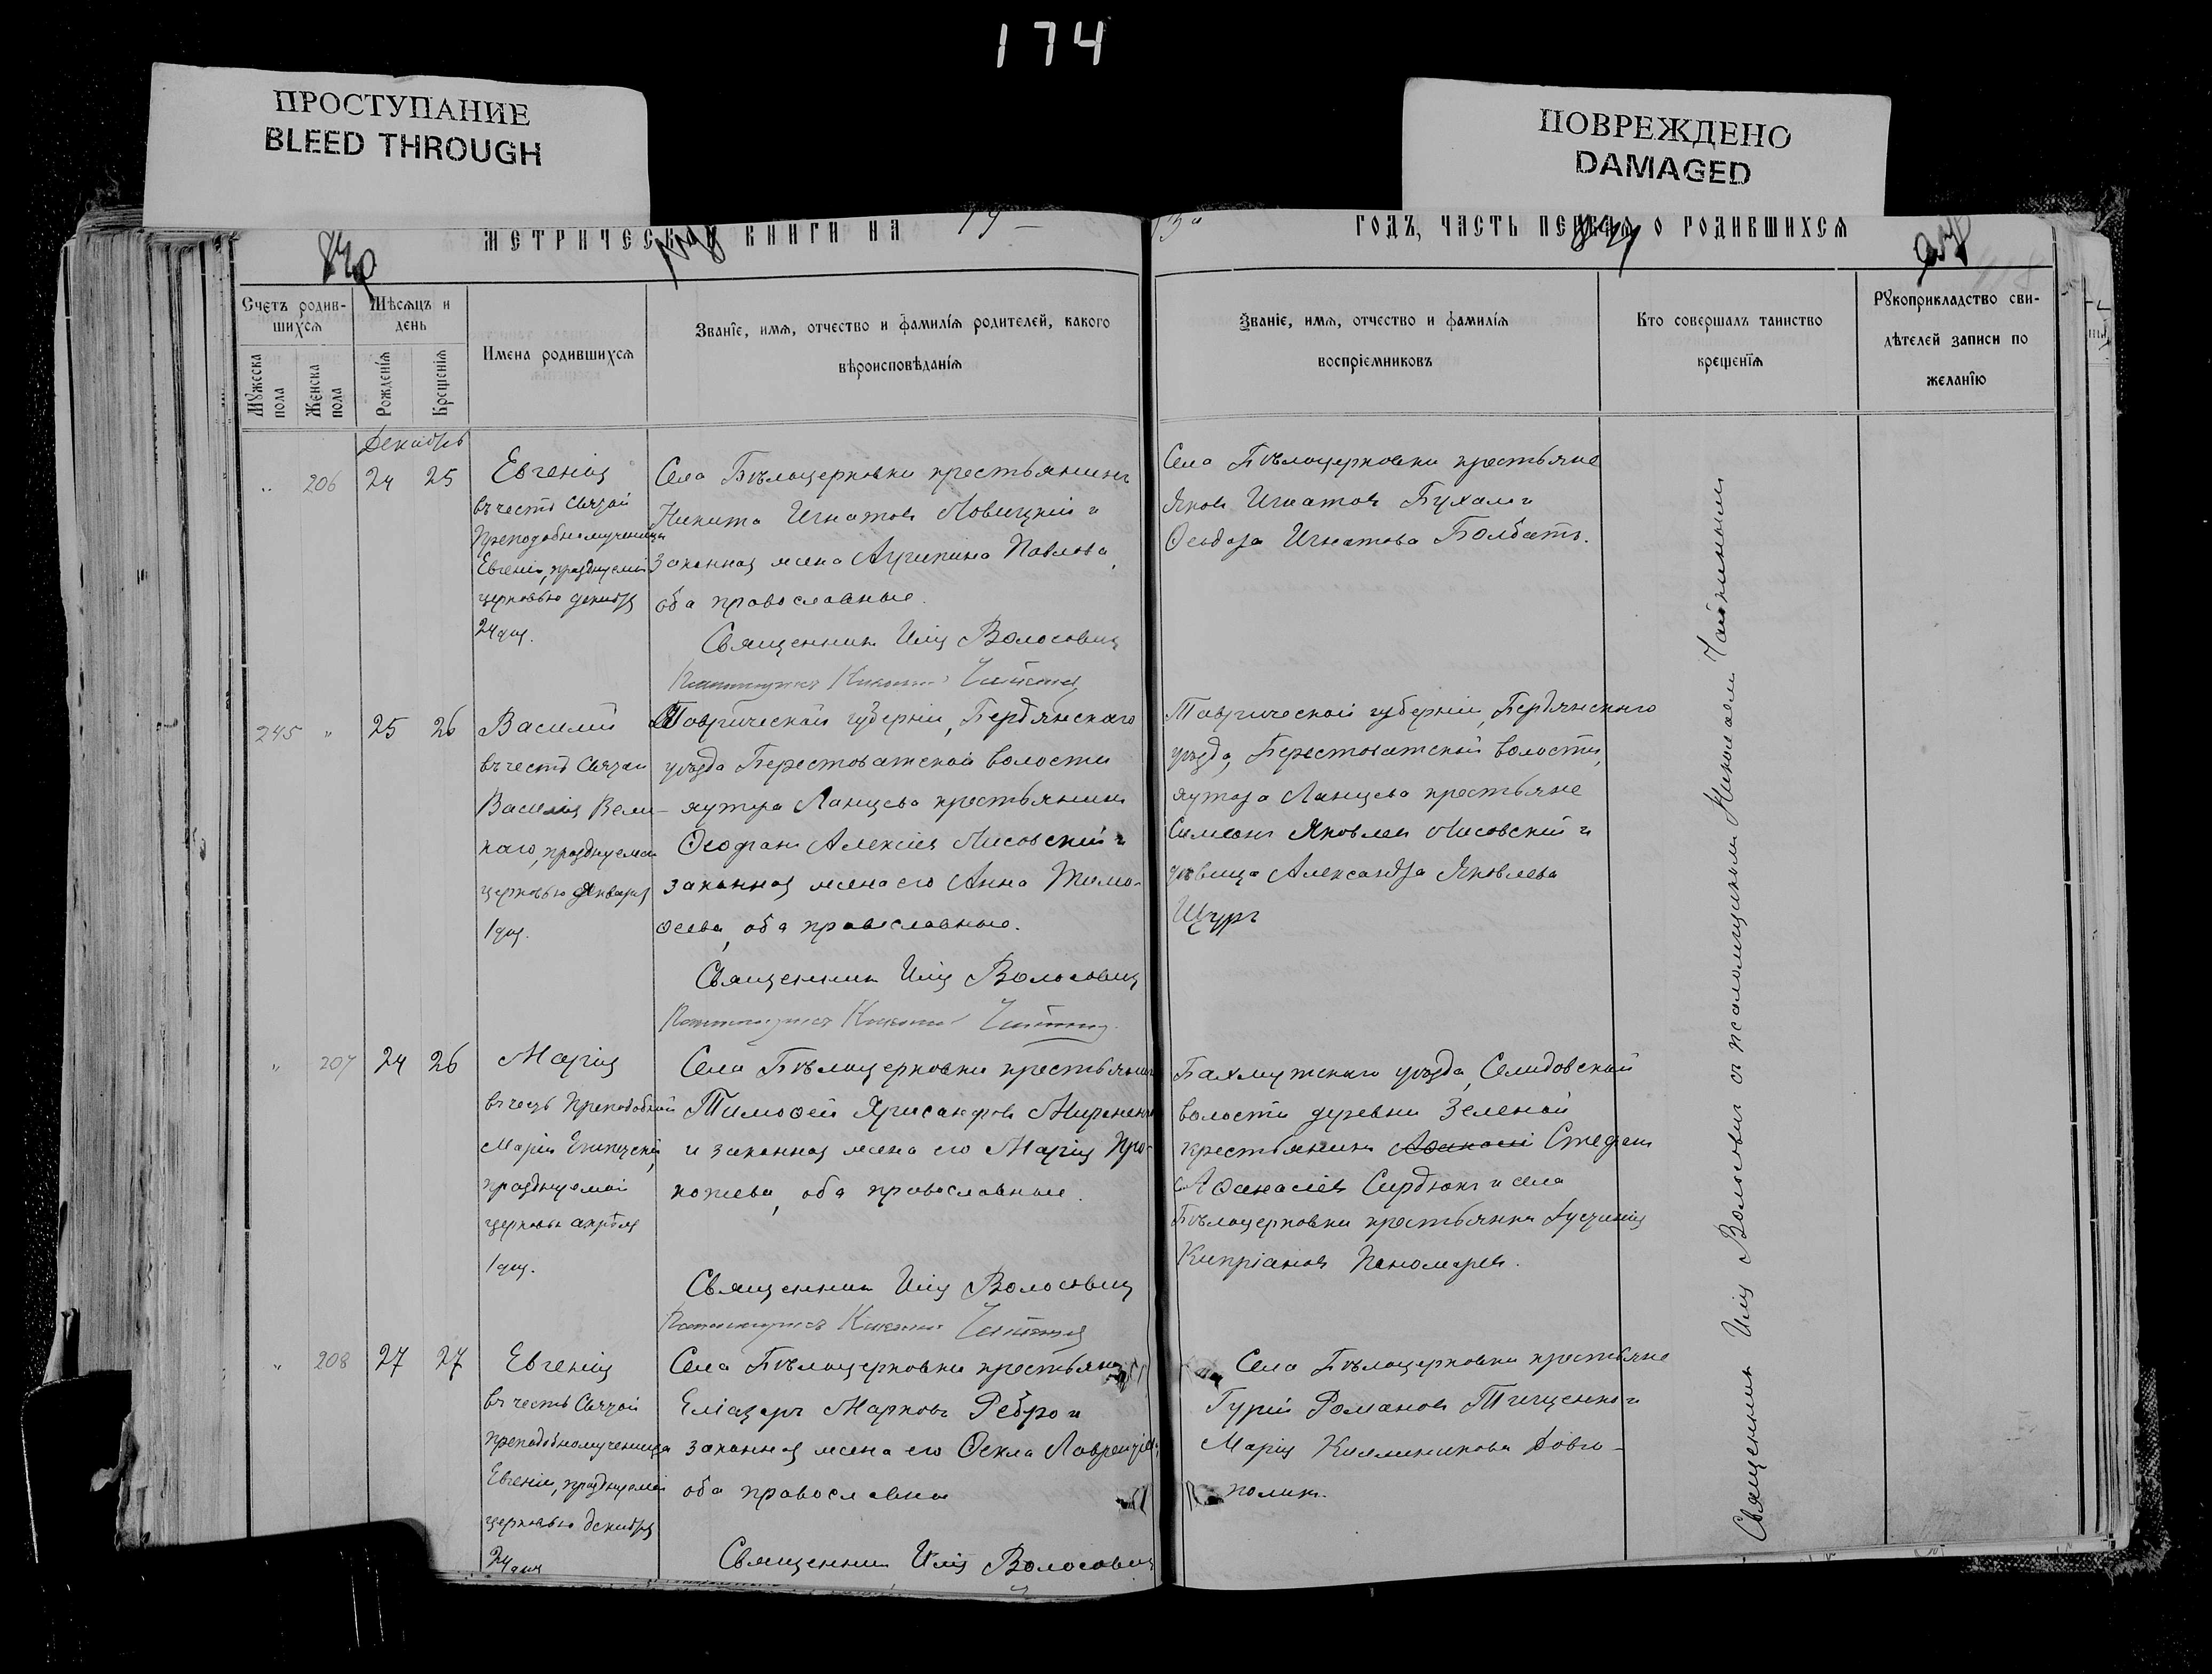 174
ПРОСТУПАНИЕ
BLEED THROUGH
ПОВРЕЖДЕНО
DAMAGED
МЕТРИЧЕСКОЙ КНИГИ НА 19
13 ГОДЪ, ЧАСТЬ ПЕРВАЯ О РОДИВШИХСЯ
Счетъ родив-
шихся
Мужеска пола
Женска пола
Мѣсяцъ и
день
Рожденїя
Крещенїя
Имена родившихся
Званїе, имя, отчество и фамилїя родителей, какого
вѣроисповѣданїя
Званїе, имя, отчество и фамилїя
воспрїемниковъ
Кто совершалъ таинство
крещенїя
Рукоприкладство сви-
дѣтелей записи по
желанїю
Декабрь
" 206 24 25
Евгенія
въ честь Святой
Преподобномученицы
Евгеніи, празднуемой
церковью декабря
24 дня.
Села Бѣлоцерковки крестьянинъ
Никита Игнатовъ Ловицкій и
законная жена Агрипина Павлова,
оба православные.
Священникъ Илія Волосовичъ
Псаломщикъ Николай Чайкинъ
Села Бѣлоцерковки крестьяне
Яковъ Игнатовъ Бухал и
Ѳеодора Игнатова Болбатъ.
245 " 25 26
Василій
въ честь Святаго
Василія Вели-
каго, празднуемаго
церковью Января
1 дня.
Таврической губерніи, Бердянскаго
уѣзда Берестоватской волости
хутора Ланцева крестьянинъ
Ѳеофанъ Алексіевъ Лисовскій и
законная жена его Анна Тимо-
ѳеева, оба православные.
Священникъ Илія Волосовичъ
Псаломщикъ Николай Чайкинъ
Таврической губерніи, Бердянскаго
уѣзда, Берестоватской волости,
хутора Ланцева крестьяне
Симеонъ Яковлевъ Лисовскій и
дѣвица Александра Яковлева
Щуръ
" 207 24 26
Марія
въ честь Преподобной
Маріи Египетской,
празднуемой
церковью апрѣля
1 дня.
Села Бѣлоцерковки крестьянинъ
Тимоѳей Хрисанфовъ
и законная жена его Марія Про-
копіева, оба православные.
Священникъ Илія Волосовичъ
Псаломщикъ Николай Чайкинъ
Бахмутскаго уѣзда, Селидовской
волости деревни Зеленой
крестьянинъ Аѳанасій Стефанъ
Аѳанасіевъ Сердюкъ и села
Бѣлоцерковки крестьянка
Кипріанова Пономарев.
" 208 27 27
Евгенія
въ честь Святой
преподобномученицы
Евгеніи, празднуемой
церковью декабря
24 дня
Села Бѣлоцерковки крестьянинъ
Еліазаръ Марковъ Ребро и
законная жена его Ѳекла Лаврентіева
оба православны
Священникъ Илія Волосовичъ
Села Бѣлоцерковки крестьяне
Гурій Романовъ Тищенко и
Марія Каллиникова Довго-
полик.
Священникъ Илія Волосовичъ съ псаломщикомъ Николаемъ Чайкинымъ